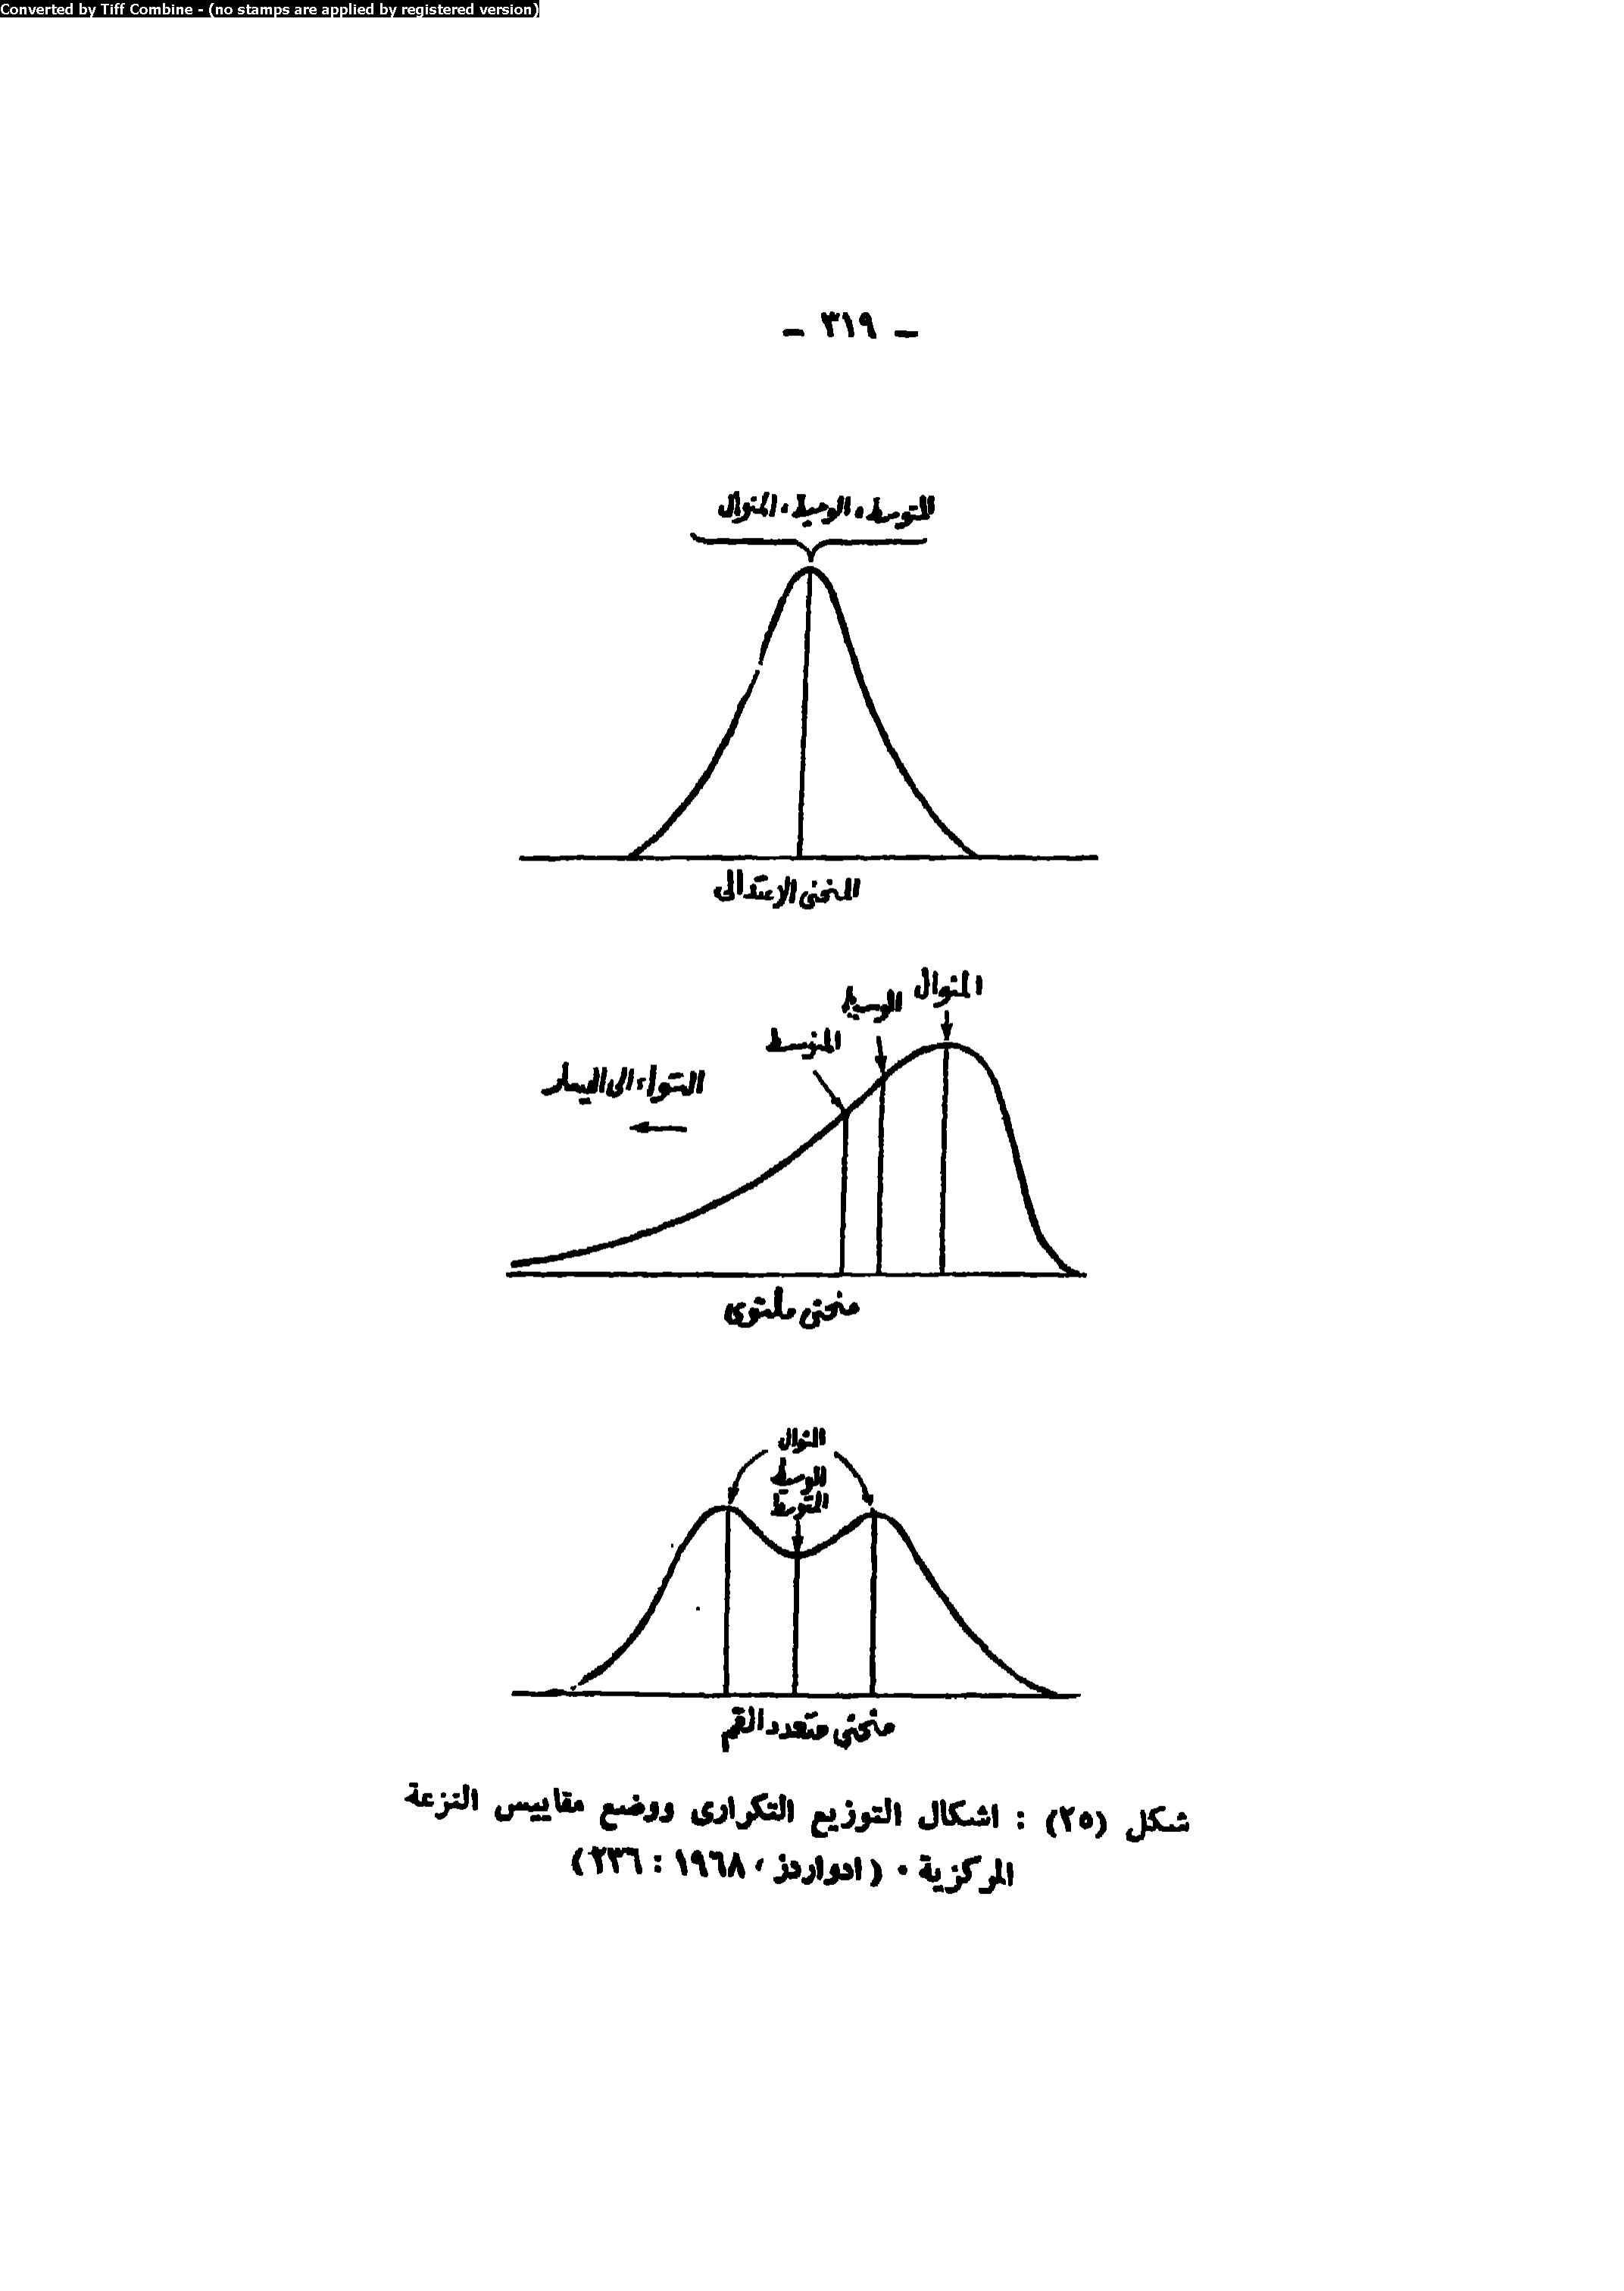 Converted by Tiff Combine - (no stamps are applied by registered version)
- ٣١٩ -
المتوسط، الوسيط، المنوال
المنحنى الاعتدالى
المنوال
الوسيط
المتوسط
التواء الى اليسار
منحنى ملتوى
المنوال
الوسيط
المتوسط
منحنى متعدد القمم
شكل (٢٥) : اشكال التوزيع التكرارى ووضع مقاييس النزعة
المركزية . (ادواردز ، ١٩٦٨ : ٢٣٦)